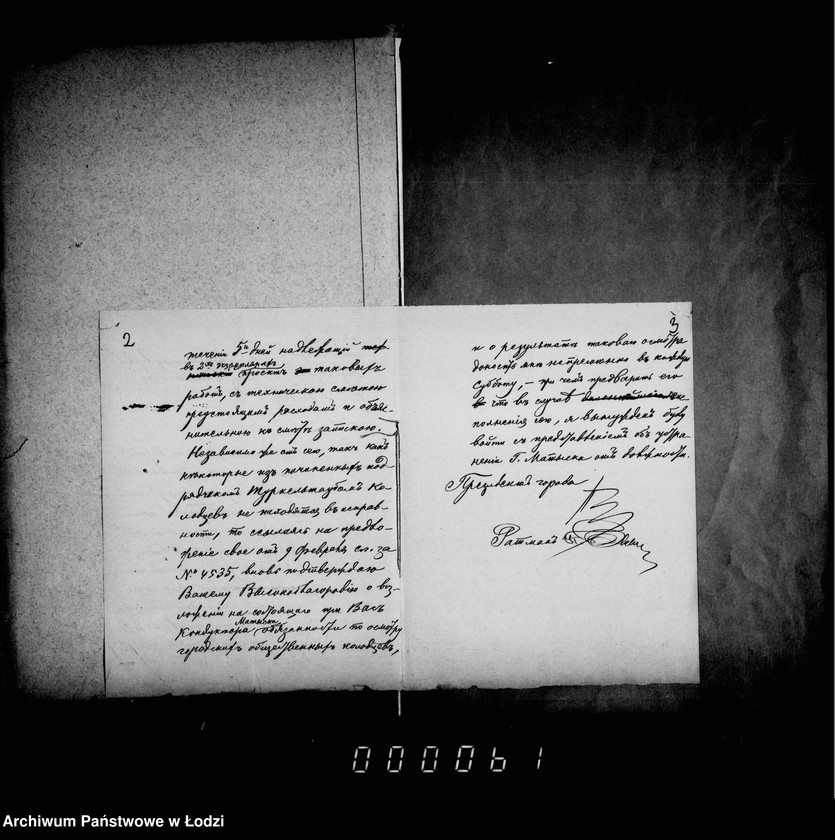 2
теченіи 5ти дней надлежащій
въ 2хъ экземплярахъ
проектъ таковыхъ
работъ, съ техническою смѣтою
предстоящимъ расходамъ и объяс-
нительною къ смѣтѣ запискою.
Независимо же отъ сего, такъ какъ
нѣкоторые изъ починенныхъ под-
рядчикомъ Туркельтаубомъ ко-
лодцевъ не находятся въ исправ-
ности, то ссылаясь на предло-
женіе свое отъ 9 Февраля с.г. за
№ 4535, вновь подтверждаю
Вашему Высокоблагородію о воз-
ложеніи на состоящаго при Васъ
Матыска
Кондуктора обязанности по осмотру
городскихъ общественныхъ колодцевъ,
3
и о результатѣ таковаго осмотра
доносить мнѣ непремѣнно въ каждую
субботу, – при чемъ предварить его
что въ случаѣ неис-
полненія сего, я вынужденъ буду
войти съ представленіемъ объ устра-
неніи Г. Матыска отъ должности.
Президентъ города
Ратманъ
000061
Archiwum Państwowe w Łodzi